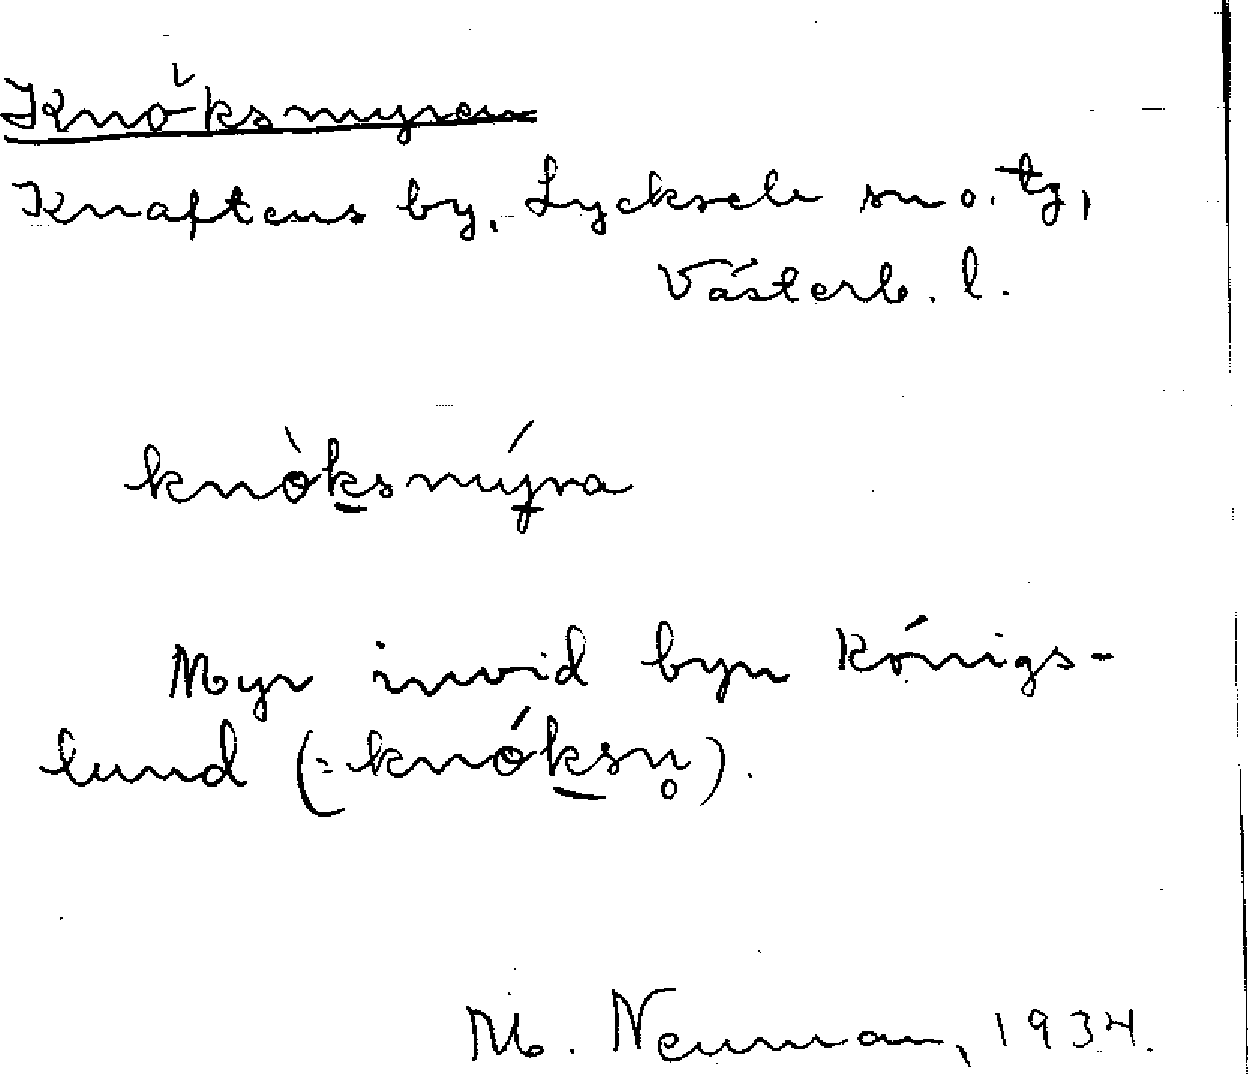 Knöksmyren
Knaftens by, Lycksele sn o. tg,
Västerb. l.
knòksmýra
Myr invid byn Königs-
lund (= knóksn̥).
M. Neuman, 1934.